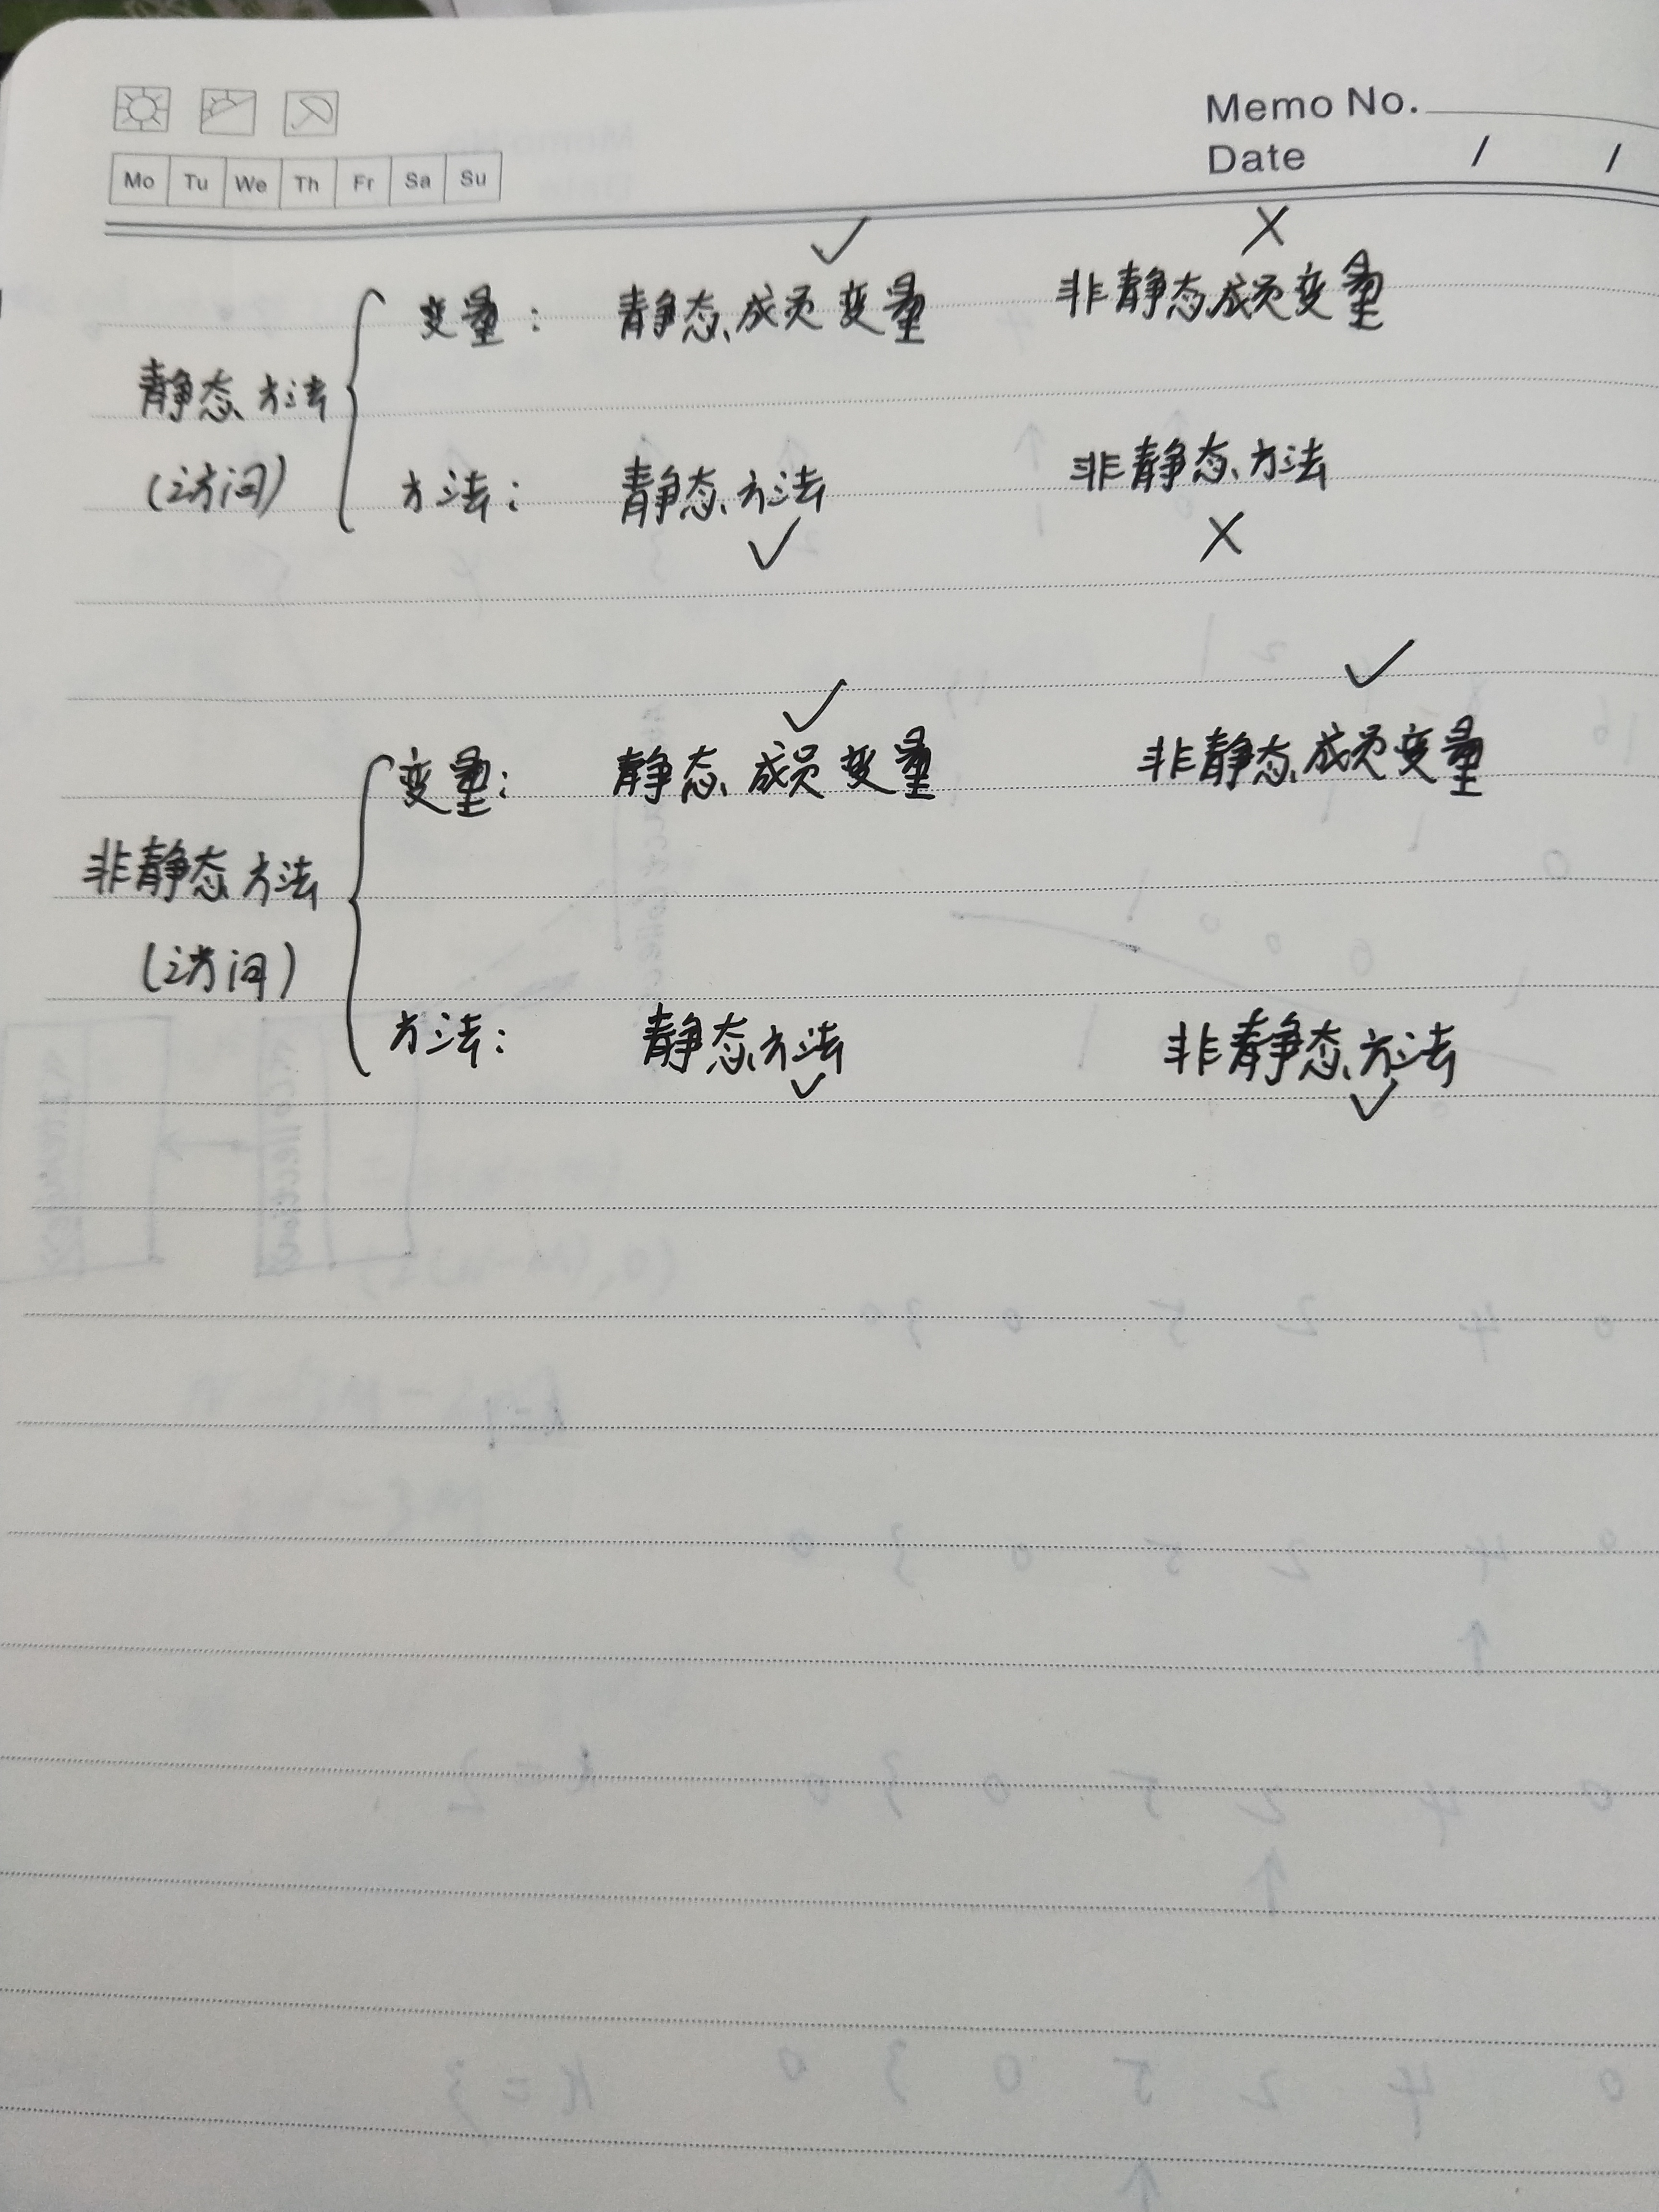 Memo No.
Mo Tu We Th Fr Sa Su
Date / /
✓ ✗
变量： 静态成员变量 非静态成员变量
静态方法
（访问） 方法： 静态方法 非静态方法
✓ ✗
✓ ✓
变量： 静态成员变量 非静态成员变量
非静态方法
（访问）
方法： 静态方法 非静态方法
✓ ✓